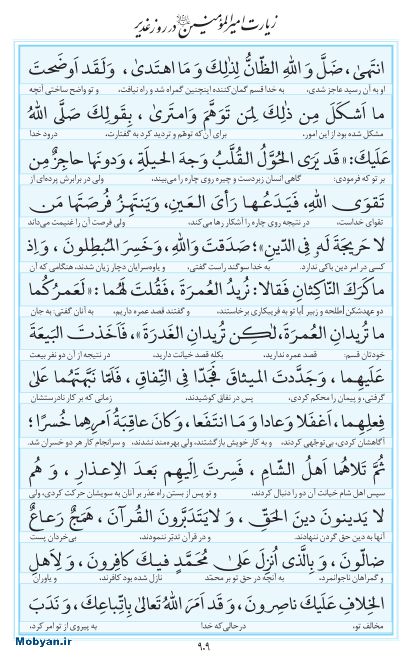 زیارت امیرالمؤمنین علیه‌السلام در روز غدیر
انتَهىٰ، ضَلَّ وَاللهِ الظّانُّ لِذٰلِكَ وَمَا اهتَدىٰ، وَلَقَد اَوضَحتَ
او به آن رسید عاجز شدی، به خدا قسم گمان‌کننده اینچنین گمراه شد و راه نیافت، و تو واضح ساختی آنچه
ما اَشكَلَ مِن ذٰلِكَ لِمَن تَوَهَّمَ وَامتَرىٰ، بِقَولِكَ صَلَّى اللهُ
مشکل شده بود از این امور، برای آن که توهّم و تردید کرد به گفتارت، درود خدا
عَلَيكَ: «قَد يَرَى الحُوَّلُ القُلَّبُ وَجهَ الحيلَةِ، وَدونَها حاجِزٌ مِن
بر تو که فرمودی: گاهی انسان زبردست و چیره روی چاره را می‌بیند، ولی در برابرش پرده‌ای از
تَقوَى اللهِ، فَيَدَعُها رَأىَ العَينِ، وَيَنتَهِزُ فُرصَتَها مَن
تقوای خداست، در نتیجه روی چاره را آشکار رها می‌کند، ولی فرصت آن را غنیمت می‌داند
لا حَريجَةَ لَهُ فِى الدّينِ»؛ صَدَقتَ وَاللهِ، وَخَسِرَ المُبطِلونَ، وَاِذ
کسی در امر دین باکی ندارد. به خدا سوگند راست گفتی، و یاوه‌سرایان دچار زیان شدند، هنگامی که آن
ماكَرَكَ النّاكِثانِ فَقالا: نُريدُ العُمرَةَ، فَقُلتَ لَهُما: «لَعَمرُكُما
دو عهدشکن [طلحه و زبیر] با تو به فریبکاری برخاستند، و گفتند قصد عمره داریم، به آنان گفتی: به جان
ما تُريدانِ العُمرَةَ، لٰكِن تُريدانِ الغَدرَةَ»، فَاَخَذتَ البَيعَةَ
خودتان قسم: قصد عمره ندارید، بلکه قصد خیانت دارید، در نتیجه از آن دو نفر بیعت
عَلَيهِما، وَجَدَّدتَ الميثاقَ فَجَدّا فِى النِّفاقِ، فَلَمّا نَبَّهتَهُما عَلىٰ
گرفتی، و پیمان را محکم کردی، پس در نفاق کوشیدند، زمانی که بر کار نادرستشان
فِعلِهِما، اَغفَلا وَعادا وَمَا انتَفَعا، وَكانَ عاقِبَةُ اَمرِهِما خُسرًا؛
آگاهشان کردی، بی‌توجّهی کردند، و به کار خویش بازگشتند، ولی بهره‌مند نشدند، و سرانجام کار هر دو خسران شد.
ثُمَّ تَلاهُما اَهلُ الشّامِ، فَسِرتَ اِلَيهِم بَعدَ الاِعذارِ، وَهُم
سپس اهل شام خیانت آن دو را دنبال کردند، و تو پس از بستن راه عذر بر آنان به سویشان حرکت کردی، ولی
لا يَدينونَ دينَ الحَقِّ، وَلا يَتَدَبَّرونَ القُرآنَ، هَمَجٌ رَعاعٌ
آنها به دین حق گردن ننهادند، و در قرآن تدبّر ننمودند، بی‌خردان پست
ضالّونَ، وَبِالَّذى اُنزِلَ عَلىٰ مُحَمَّدٍ فيكَ كافِرونَ، وَلِاَهلِ
و گمراهان ناجوانمرد، به آنچه در حق تو بر محمّد نازل شده بود کافرند، و یاوران
الخِلافِ عَلَيكَ ناصِرونَ، وَقَد اَمَرَ اللهُ تَعالىٰ بِاتِّباعِكَ، وَنَدَبَ
مخالف تو، درحالی‌که خدا به پیروی از تو امر کرد،
۹۰۹
Mobyan.ir